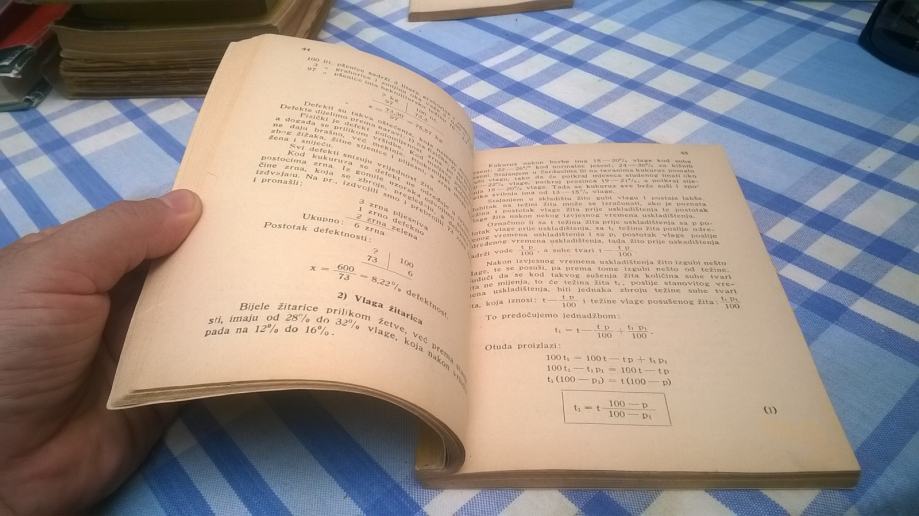 44
100 lit. pšenice sadrži 3 litara
3 „ grahorice i
97 „ pšenice ima
? kg
97 | 100
x =
Defekti su takva oštećenja
Defekte dijelimo prema naravi
Fizički je defekt polomljeno zrno
a događa se prilikom vršidbe. Kod
ne daju brašno, već mekinje. Defekti
zbog žižaka, žitne stjenice i
žena i snijeću.
Svi defekti snizuju vrijednost žita.
Kod kukuruza se defekt ne
postocima zrna. Iz gomile
čine zrna, koja se zbroje, onda
izdvajaju. Na pr., izdvojili smo i prebrojili 73
i pronašli:
3 zrna pljesniva
1 zrno defektno
2 zrna zelena
Ukupno: 6 zrna
Postotak defektnosti:
?
73 | 100
6
x = 600/73 = 8.22% defektnosti
2) Vlaga žitarica
Bijele žitarice prilikom žetve, već prema
sti, imaju od 28% do 32% vlage, koja nakon
pada na 12% do 16%.
45
Kukuruz nakon berbe ima 18—20% vlage kod suhe
jeseni; 22—24% kod normalne jeseni; 24—30% za kišnih
Stajanjem u čardacima ili na tavanima kukuruz pomalo
gubi vlagu, tako da će potkraj mjeseca studenoga imati
22% vlage, potkraj prosinca 19—21%, a potkraj
18—20% vlage. Tada se kukuruz sve brže suši i
svibnja ima od 13—15% vlage.
Stajanjem u skladištu žito gubi vlagu i postaje lakše.
Gubitak na težini žita može se izračunati, ako je poznata
težina i postotak vlage žita prije uskladištenja te postotak
vlage žita nakon nekog izvjesnog vremena uskladištenja.
Označimo li sa t težinu žita prije uskladištenja, sa p po-
stotak vlage prije uskladištenja, sa t₁ težinu poslije odre-
đenog vremena uskladištenja i sa p₁ postotak vlage poslije
određenog vremena uskladištenja, tada žito prije uskladištenja
sadrži vode t p/100, a suhe tvari t — t p/100.
Nakon izvjesnog vremena uskladištenja žito izgubi nešto
vlage, te se posuši, pa prema tome izgubi nešto od težine.
Budući da se kod takvog sušenja žita količina suhe tvari
ne mijenja, to će težina žita t₁, poslije stanovitog vre-
mena uskladištenja, biti jednaka zbroju težine suhe tvari
žita, koja iznosi: t — t p/100 i težine vlage posušenog žita: t₁ p₁/100.
To predočujemo jednadžbom:
t₁ = t — t p/100 + t₁ p₁/100.
Otuda proizlazi:
100 t₁ = 100 t — t p + t₁ p₁
100 t₁ — t₁ p₁ = 100 t — t p
t₁ (100 — p₁) = t (100 — p)
t₁ = t (100 — p)/(100 — p₁)
(1)